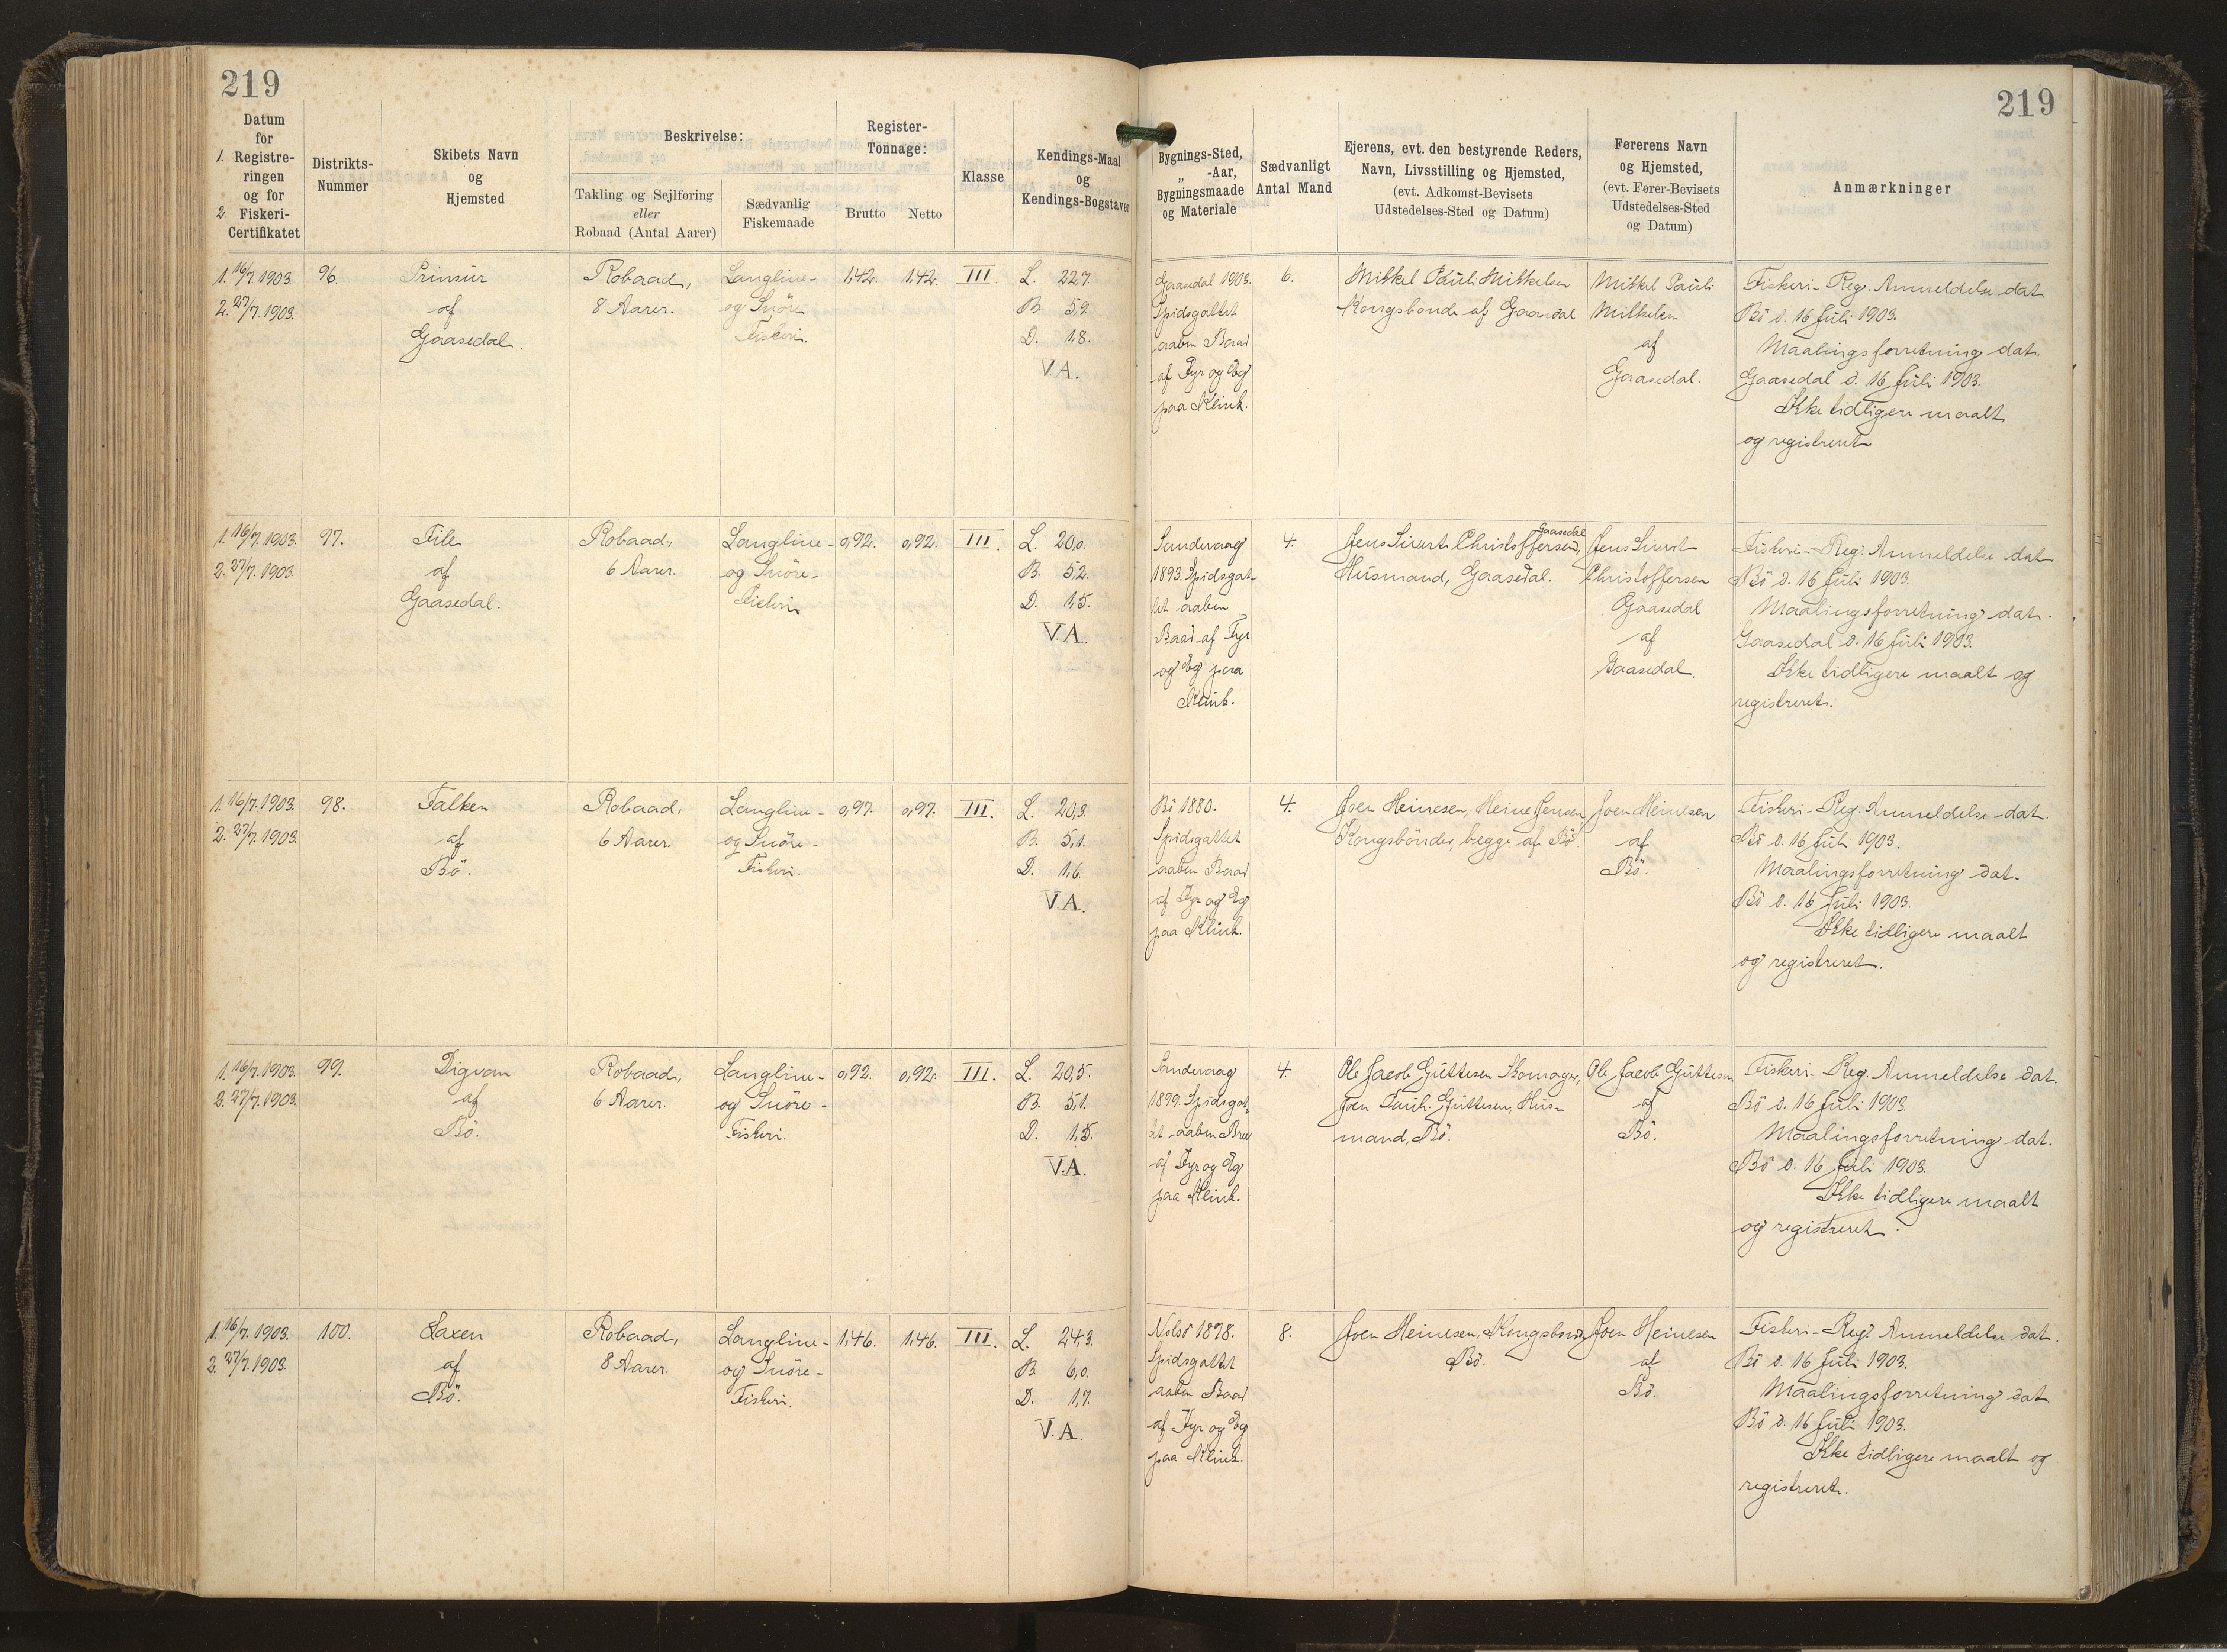 219
219
Datum
for
1. Registre-
ringen
og for
2. Fiskeri-
Certifikatet
Distrikts-
Nummer
Skibets Navn
og
Hjemsted
Beskrivelse:
Takling og Sejlføring
eller
Robaad (Antal Aarer)
Sædvanlig
Fiskemaade
Register-
Tonnage:
Brutto
Netto
Klasse
Kendings-Maal
og
Kendings-Bogstaver
Bygnings-Sted,
„ -Aar,
Bygningsmaade
og Materiale
Sædvanligt
Antal Mand
Ejerens, evt. den bestyrende Reders,
Navn, Livsstilling og Hjemsted,
(evt. Adkomst-Bevisets
Udstedelses-Sted og Datum)
Førerens Navn
og Hjemsted,
(evt. Fører-Bevisets
Udstedelses-Sted
og Datum)
Anmærkninger
1. 16/7. 1903.
2. 27/7. 1903.
96.
Prinsur
af
Gaasedal.
Robaad,
8 Aarer.
Langline-
og Snöre
Fiskeri.
1,42.
1,42.
III.
L. 22,7.
B. 5,9.
D. 1,8.
V.A.
Gaasedal 1903.
Spidsgattet
aaben Baad
af Fyr og Eg
paa Klink.
6.
Mikkel Pauli Mikkelsen
Kongsbonde af Gaasedal
Mikkel Pauli
Mikkelsen
af
Gaasedal.
Fiskeri-Reg. Anmeldelse dat.
Bö d. 16 Juli 1903.
Maalingsforretning dat.
Gaasedal d. 16 Juli 1903.
Ikke tidligere maalt
og registreret
1. 16/7. 1903.
2. 27/7. 1903.
97.
af
Gaasedal.
Robaad,
6 Aarer.
Langline-
og Snöre-
Fiskeri
0,92.
0,92.
III.
L. 20,0.
B. 5,2.
D. 1,5.
V.A.
Sandevaag
1893. Spidsgat-
tet aaben
Baad af Fyr
og Eg paa
Klink.
4.
Gaasedal
Jens Sivert Christoffersen,
Husmand, Gaasedal.
Jens Sivert
Christoffersen
Gaasedal
af
Gaasedal.
Fiskeri-Reg. Anmeldelse dat
Bö d. 16 Juli 1903.
Maalingsforretning dat.
Gaasedal d. 16 Juli 1903.
Ikke tidligere maalt og
registreret.
1. 16/7. 1903.
2. 27/7. 1903.
98.
Falken
af
Bö.
Robaad,
6 Aarer
Langline-
og Snöre-
Fiskeri.
0,97.
0,97.
III.
L. 20,3.
B. 5,1.
D. 1,6.
V.A.
Bö 1880.
Spidsgattet
aaben Baad
af Fyr og Eg
paa Klink.
4.
Joen Heinesen, Heine Jensen
Kongsbönder, begge af Bö.
Joen Heinesen
af
Bö.
Fiskeri-Reg. Anmeldelse dat.
Bö d. 16 Juli 1903.
Maalingsforretning dat.
Bö d. 16 Juli 1903.
Ikke tidligere maalt
og registreret.
1. 16/7. 1903.
2. 27/7. 1903.
99.
Digvan
af
Bö.
Robaad,
6 Aarer.
Langline-
og Snöre-
Fiskeri.
0,92.
0,92.
III.
L. 20,5.
B. 5,1.
D. 1,5.
V.A.
Sandevaag
1899. Spidsgat-
tet aaben
af Fyr og Eg
paa Klink.
4.
Ole Jacob Guttesen Skomager,
Joen Pauli Guttesen, Hus-
mand, Bö.
Ole Jacob Guttesen
af
Bö.
Fiskeri-Reg. Anmeldelse dat.
Bö d. 16 Juli 1903.
Maalingsforretning dat.
Bö d. 16 Juli 1903.
Ikke tidligere maalt
og registreret.
1. 16/7. 1903.
2. 27/7. 1903.
100.
Laxen
af
Bö.
Robaad,
8 Aarer.
Langline-
og Snöre-
Fiskeri.
1,46.
1,46.
III.
L. 24,3.
B. 6,0.
D. 1,7.
V.A.
Nolsö 1878.
Spidsgattet
aaben Baad
af Fyr og Eg
paa Klink.
8.
Joen Heinesen, Kongsbonde
Bö.
Joen Heinesen
af
Bö.
Fiskeri-Reg. Anmeldelse dat.
Bö d. 16 Juli 1903.
Maalingsforretning dat
Bö d. 16 Juli 1903.
Ikke tidligere maalt og
registreret.